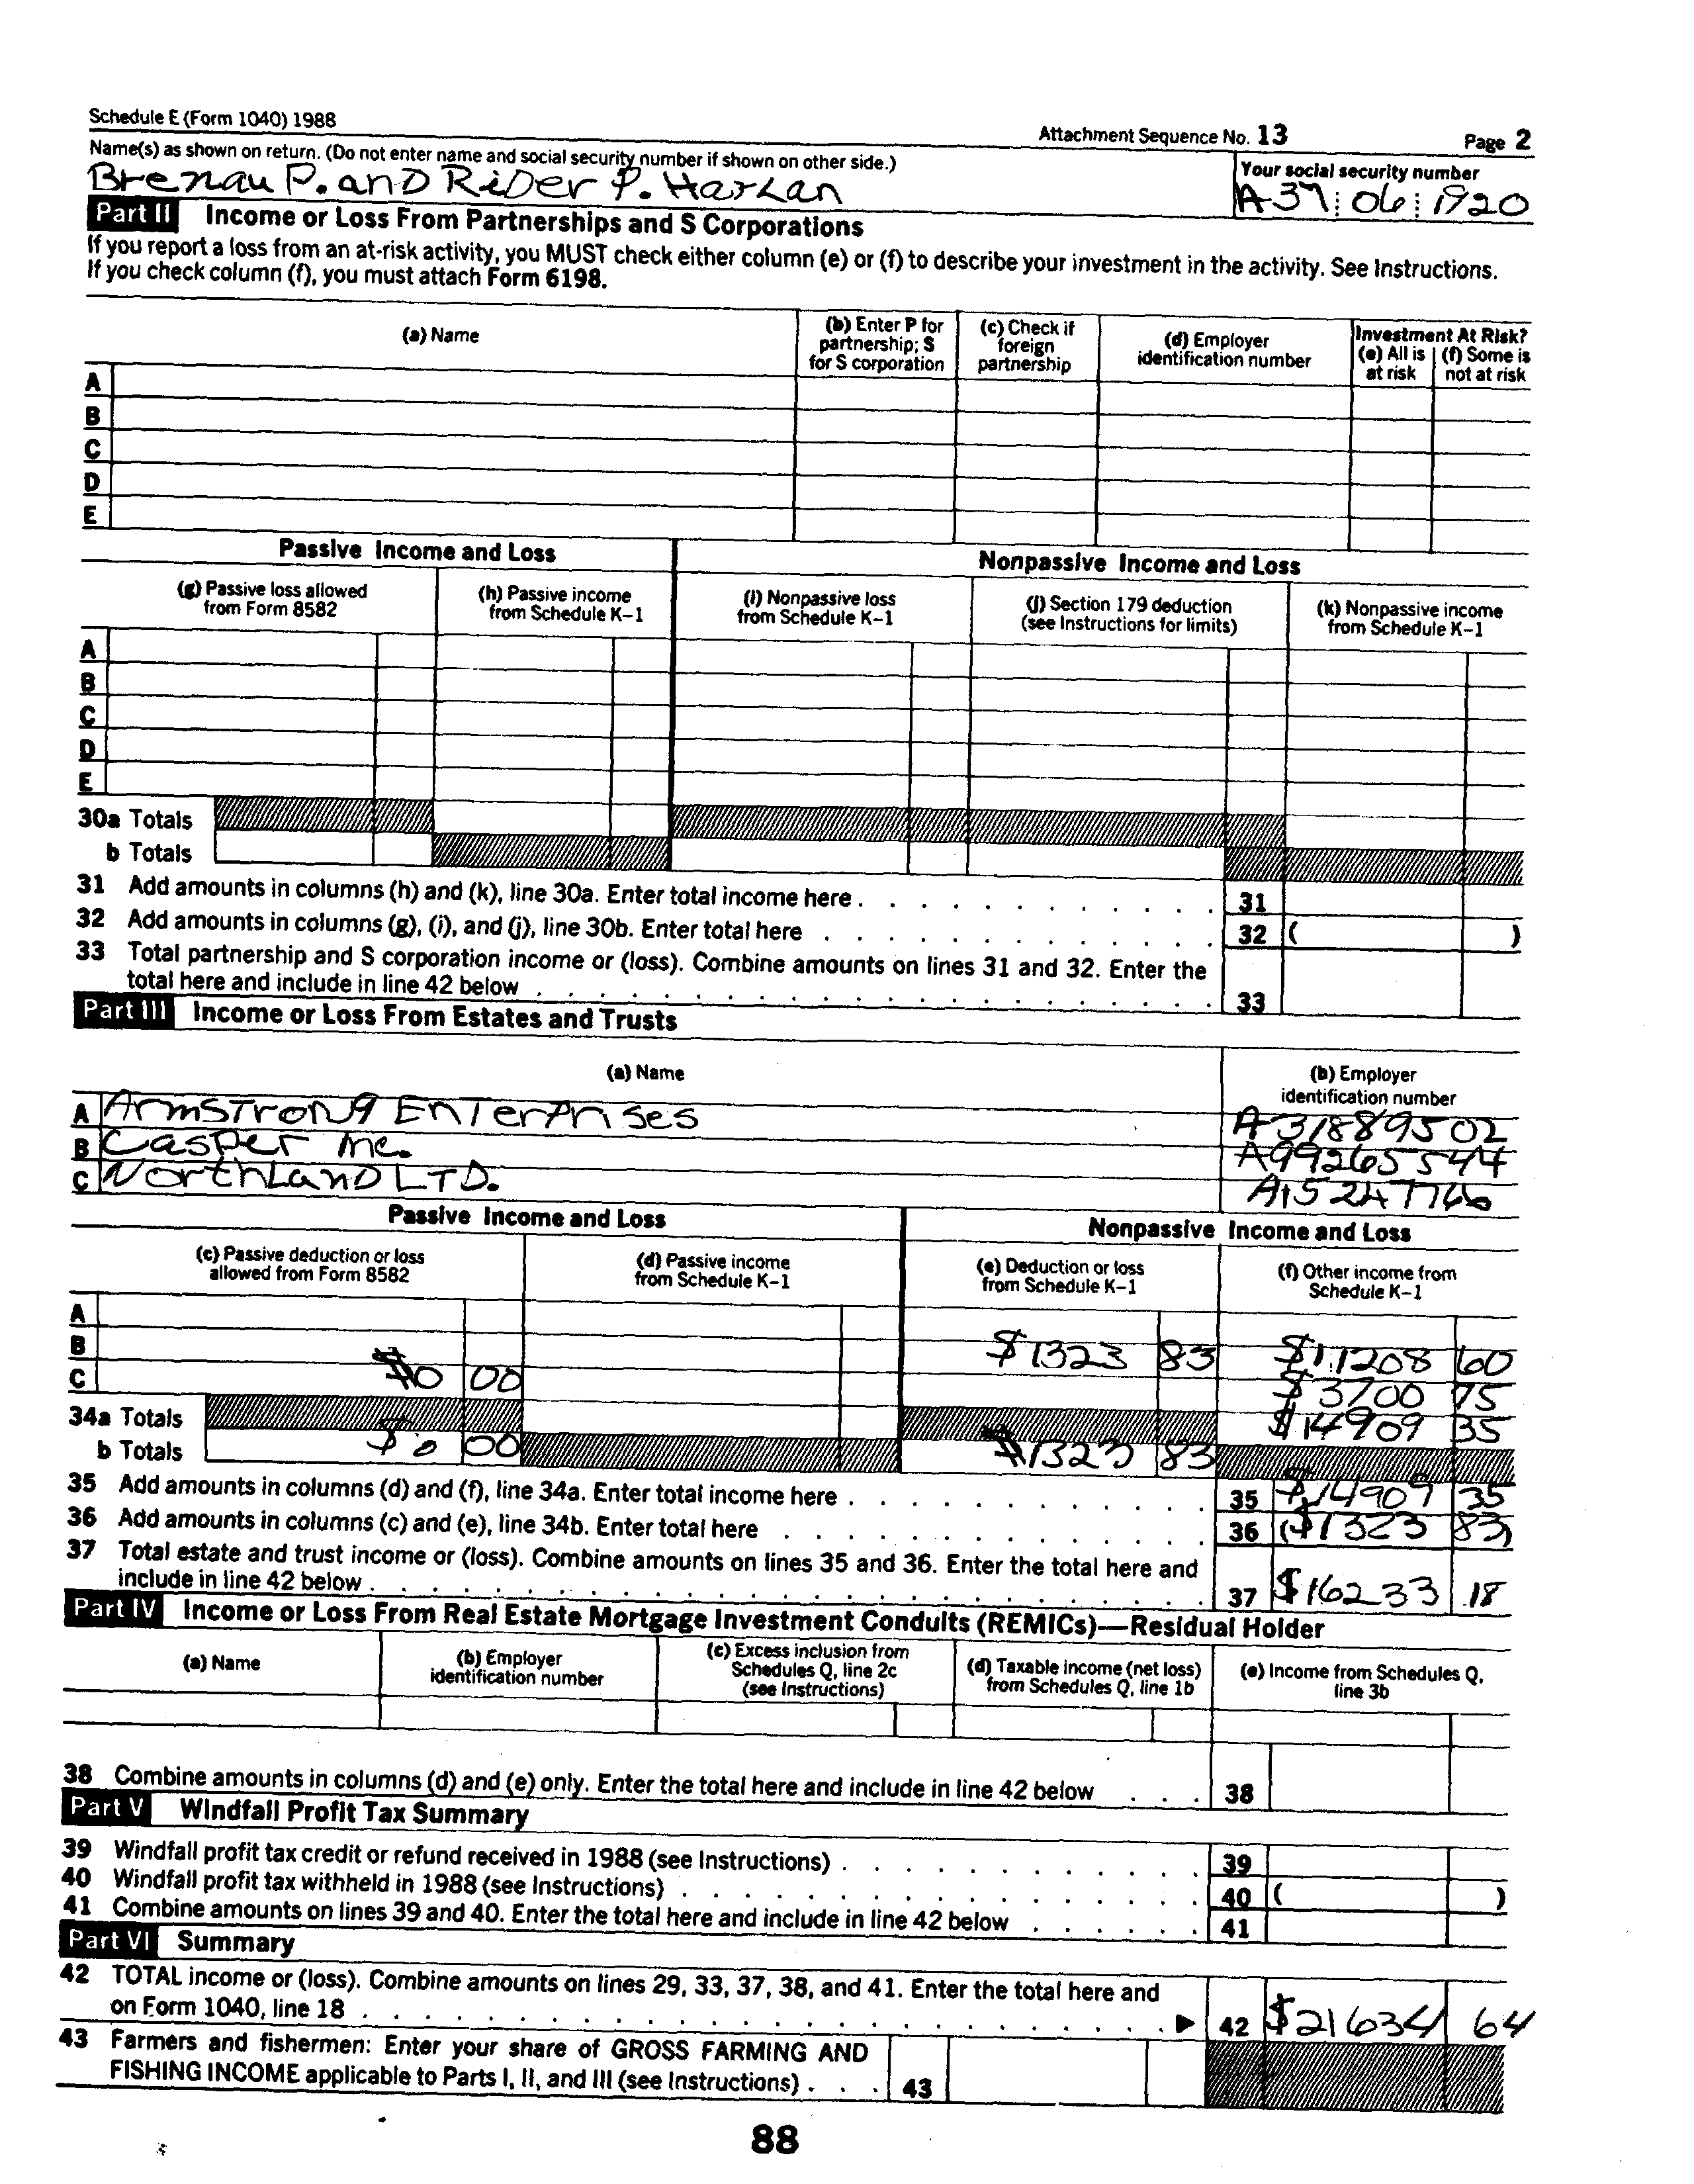 Schedule E (Form 1040) 1988
Attachment Sequence No. 13 Page 2
Name(s) as shown on return. (Do not enter name and social security number if shown on other side.)
Your social security number
Brenau P. and Rider P. Harlan
A 37 06 1920
Part II Income or Loss From Partnerships and S Corporations
If you report a loss from an at-risk activity, you MUST check either column (e) or (f) to describe your investment in the activity. See Instructions.
If you check column (f), you must attach Form 6198.
(a) Name
(b) Enter P for partnership; S for S corporation
(c) Check if foreign partnership
(d) Employer identification number
Investment At Risk?
(e) All is at risk
(f) Some is not at risk
A
B
C
D
E
Passive Income and Loss
Nonpassive Income and Loss
(g) Passive loss allowed from Form 8582
(h) Passive income from Schedule K-1
(i) Nonpassive loss from Schedule K-1
(j) Section 179 deduction (see Instructions for limits)
(k) Nonpassive income from Schedule K-1
A
B
C
D
E
30a Totals
b Totals
31 Add amounts in columns (h) and (k), line 30a. Enter total income here . 31
32 Add amounts in columns (g), (i), and (j), line 30b. Enter total here . 32 ( )
33 Total partnership and S corporation income or (loss). Combine amounts on lines 31 and 32. Enter the
total here and include in line 42 below . 33
Part III Income or Loss From Estates and Trusts
(a) Name
(b) Employer identification number
A Armstrong Enterprises A 31889502
B Casper Inc. A99265544
C Northland LTD. A15247766
Passive Income and Loss
Nonpassive Income and Loss
(c) Passive deduction or loss allowed from Form 8582
(d) Passive income from Schedule K-1
(e) Deduction or loss from Schedule K-1
(f) Other income from Schedule K-1
A
B $1323 83 $11208 60
C $0 00 $3700 75
34a Totals $14909 35
b Totals $0 00 $1323 83
35 Add amounts in columns (d) and (f), line 34a. Enter total income here . 35 $14909 35
36 Add amounts in columns (c) and (e), line 34b. Enter total here . 36 ($1323 83)
37 Total estate and trust income or (loss). Combine amounts on lines 35 and 36. Enter the total here and
include in line 42 below . 37 $16233 18
Part IV Income or Loss From Real Estate Mortgage Investment Conduits (REMICs)—Residual Holder
(a) Name
(b) Employer identification number
(c) Excess inclusion from Schedules Q, line 2c (see Instructions)
(d) Taxable income (net loss) from Schedules Q, line 1b
(e) Income from Schedules Q, line 3b
38 Combine amounts in columns (d) and (e) only. Enter the total here and include in line 42 below . . . 38
Part V Windfall Profit Tax Summary
39 Windfall profit tax credit or refund received in 1988 (see Instructions) . 39
40 Windfall profit tax withheld in 1988 (see Instructions) . 40 ( )
41 Combine amounts on lines 39 and 40. Enter the total here and include in line 42 below . 41
Part VI Summary
42 TOTAL income or (loss). Combine amounts on lines 29, 33, 37, 38, and 41. Enter the total here and
on Form 1040, line 18 . ▶ 42 $21634 64
43 Farmers and fishermen: Enter your share of GROSS FARMING AND
FISHING INCOME applicable to Parts I, II, and III (see Instructions) . . . 43
88